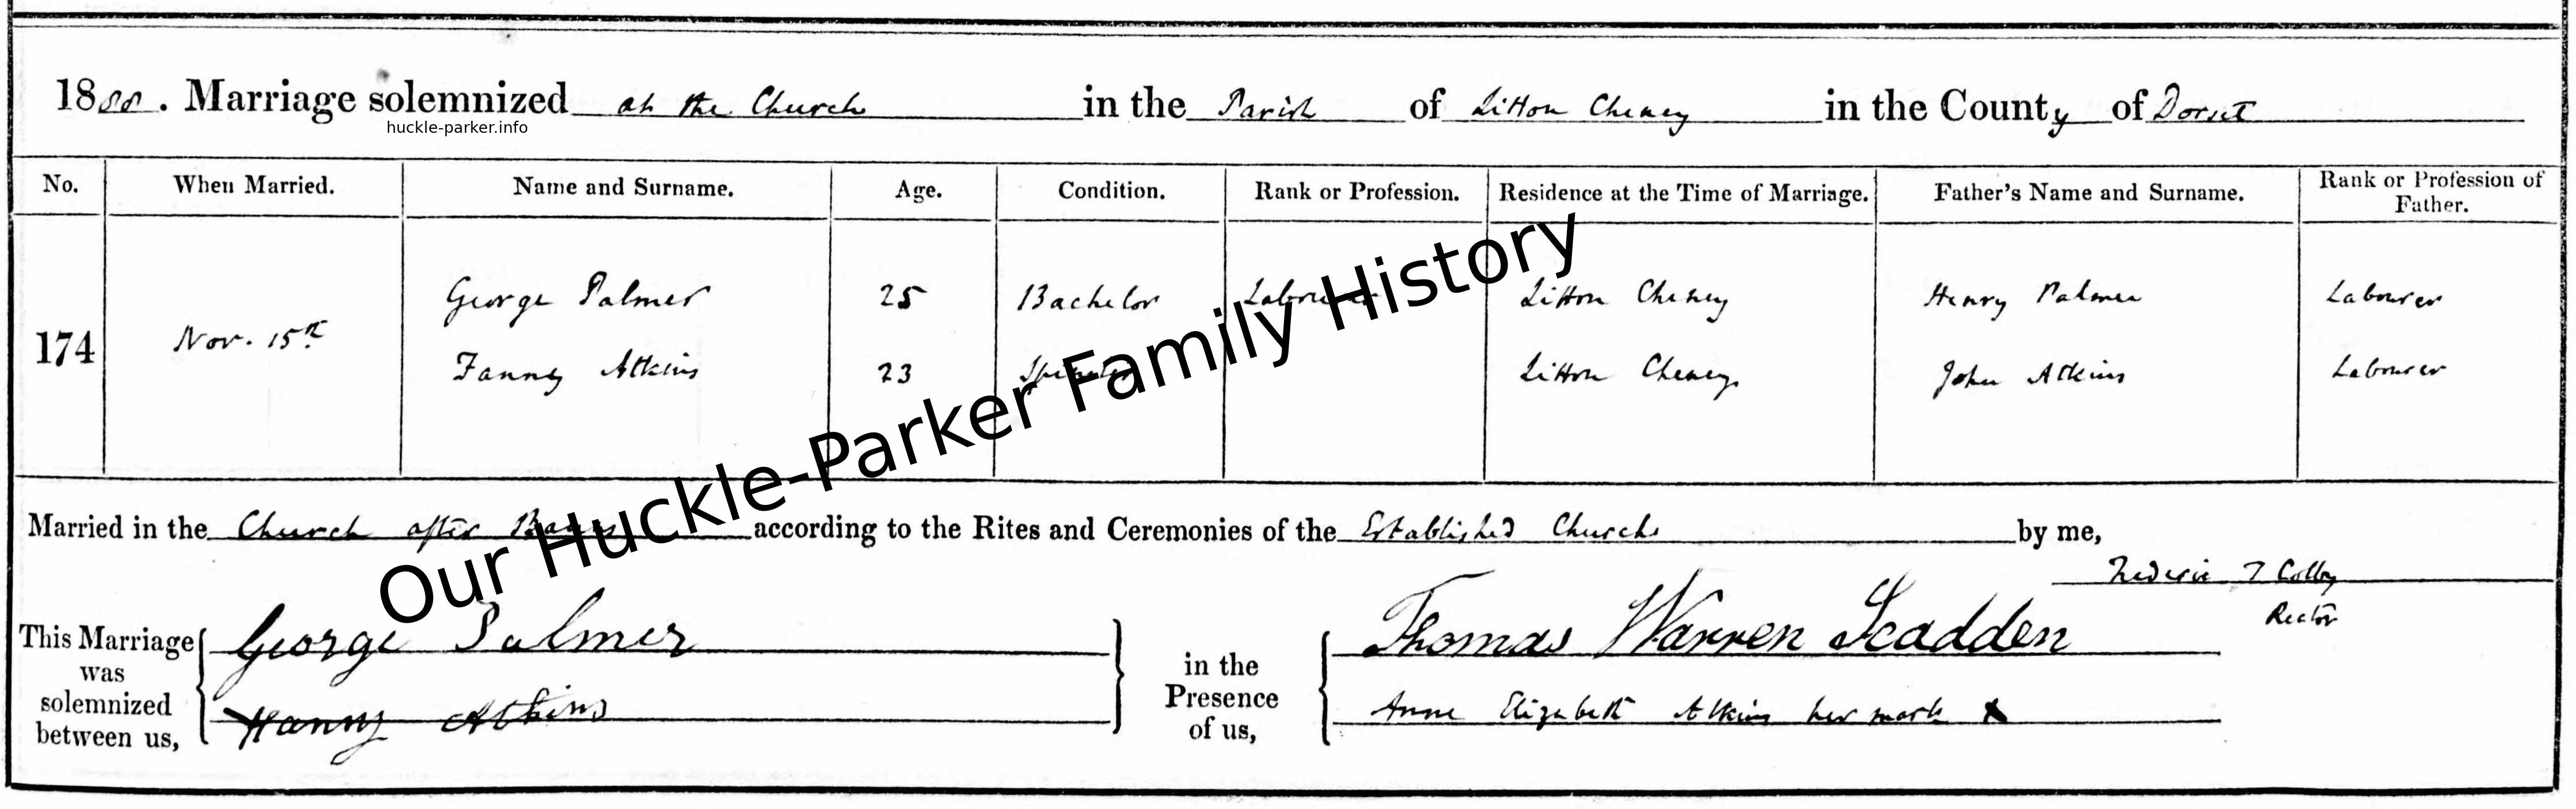 1888. Marriage solemnized at the Church in the Parish of Litton Cheney in the County of Dorset
huckle-parker.info
No. When Married. Name and Surname. Age. Condition. Rank or Profession. Residence at the Time of Marriage. Father's Name and Surname. Rank or Profession of Father.
George Palmer 25 Bachelor Labourer Litton Cheney Henry Palmer Labourer
174 Nov. 15th
Fanny Atkins 23 Spinster Litton Cheney John Atkins Labourer
Our Huckle-Parker Family History
Married in the Church after Banns according to the Rites and Ceremonies of the Established Church by me,
Frederic T Colby
Rector
This Marriage was solemnized between us,
George Palmer
Fanny Atkins
in the Presence of us,
Thomas Warren Scadden
Anne Elizabeth Atkins her mark X